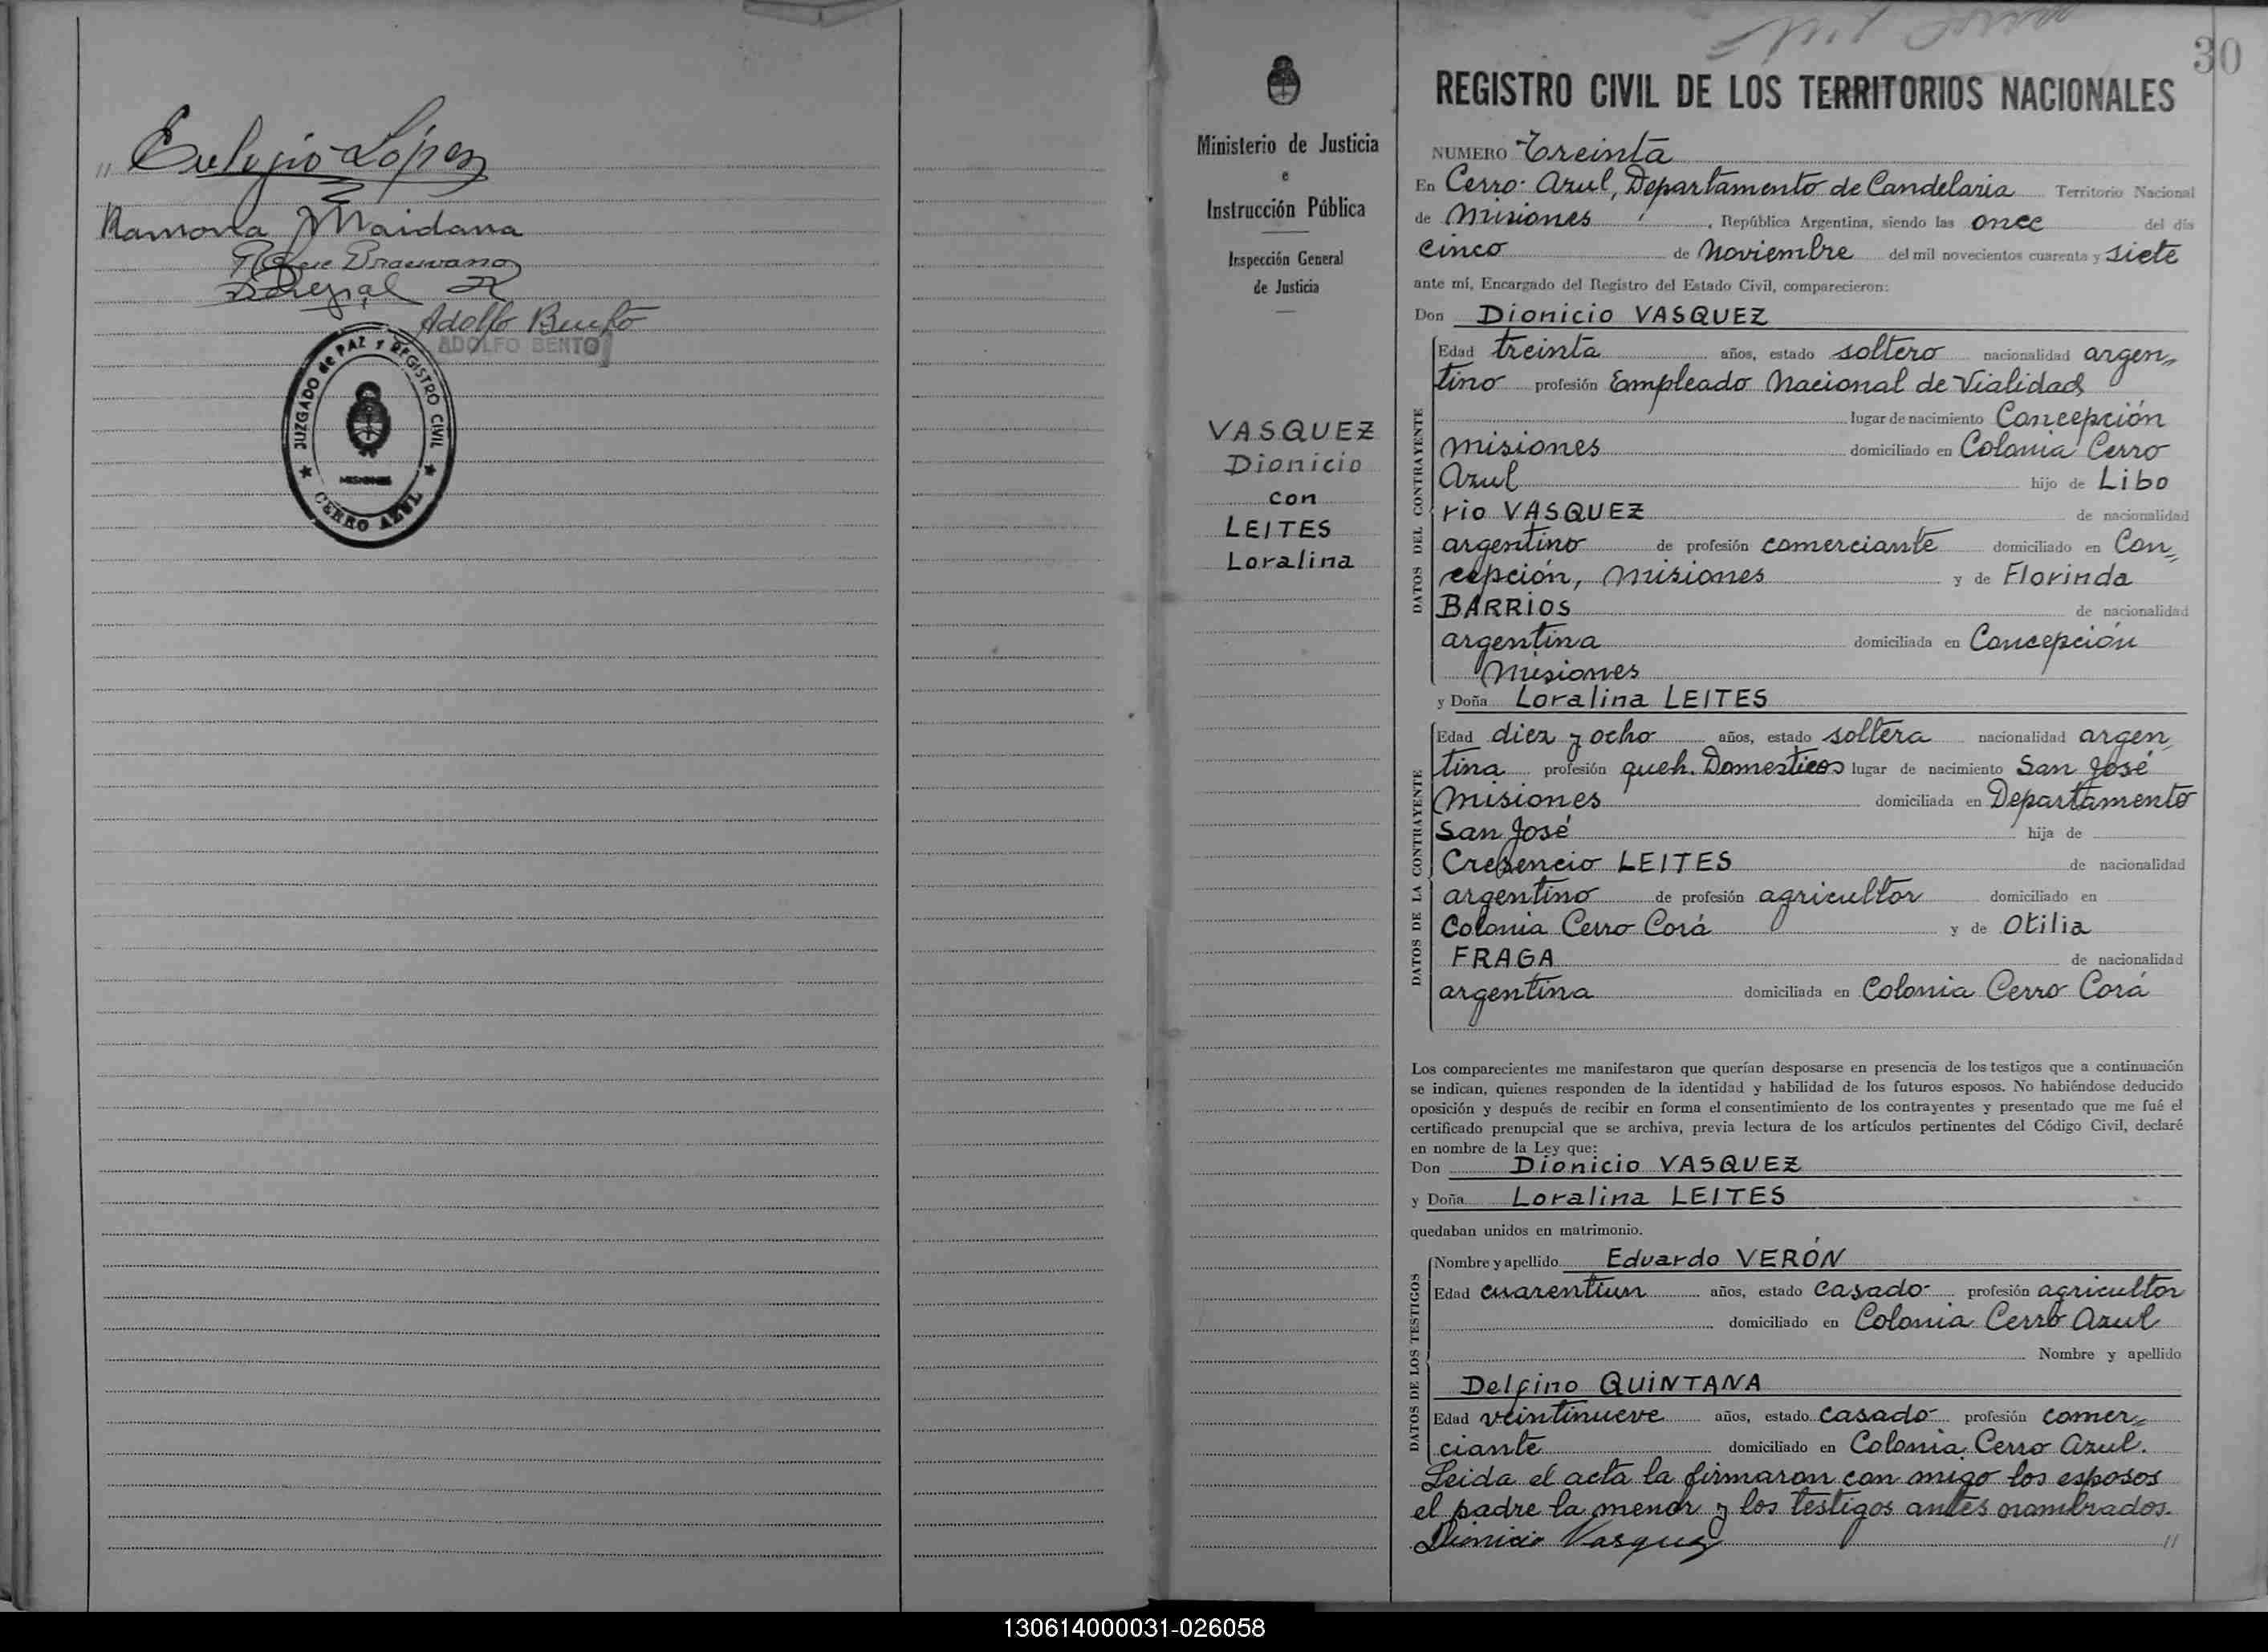 " Eulogio López
Ramona Maidana
Adolfo Bento
ADOLFO BENTO
JUZGADO de PAZ y REGISTRO CIVIL
MISIONES
CERRO AZUL
Ministerio de Justicia
e
Instrucción Pública
Inspección General
de Justicia
VASQUEZ
Dionicio
con
LEITES
Loralina
30
REGISTRO CIVIL DE LOS TERRITORIOS NACIONALES
NUMERO Treinta
En Cerro Azul, Departamento de Candelaria Territorio Nacional
de Misiones , República Argentina, siendo las once del día
cinco de Noviembre del mil novecientos cuarenta y siete
ante mí, Encargado del Registro del Estado Civil, comparecieron:
Don Dionicio VASQUEZ
DATOS DEL CONTRAYENTE
Edad treinta años, estado soltero nacionalidad argen„
tino profesión Empleado Nacional de Vialidad
lugar de nacimiento Concepción
Misiones domiciliado en Colonia Cerro
Azul hijo de Libo
rio VASQUEZ de nacionalidad
argentino de profesión comerciante domiciliado en Con„
cepción, Misiones y de Florinda
BARRIOS de nacionalidad
argentina domiciliada en Concepción
Misiones
y Doña Loralina LEITES
DATOS DE LA CONTRAYENTE
Edad diez y ocho años, estado soltera nacionalidad argen„
tina profesión queh. Domesticos lugar de nacimiento San José
Misiones domiciliada en Departamento
San José hija de
Cresencio LEITES de nacionalidad
argentino de profesión agricultor domiciliado en
Colonia Cerro Corá y de Otilia
FRAGA de nacionalidad
argentina domiciliada en Colonia Cerro Corá
Los comparecientes me manifestaron que querían desposarse en presencia de los testigos que a continuación
se indican, quienes responden de la identidad y habilidad de los futuros esposos. No habiéndose deducido
oposición y después de recibir en forma el consentimiento de los contrayentes y presentado que me fué el
certificado prenupcial que se archiva, previa lectura de los artículos pertinentes del Código Civil, declaré
en nombre de la Ley que:
Don Dionicio VASQUEZ
y Doña Loralina LEITES
quedaban unidos en matrimonio.
DATOS DE LOS TESTIGOS
Nombre y apellido Eduardo VERÓN
Edad cuarentiun años, estado casado profesión agricultor
domiciliado en Colonia Cerro Azul
Nombre y apellido
Delfino QUINTANA
Edad veintinueve años, estado casado profesión comer„
ciante domiciliado en Colonia Cerro Azul.
Leida el acta la firmaron con migo los esposos
el padre la menor y los testigos antes nombrados.
Dionicio Vasquez "
130614000031-026058